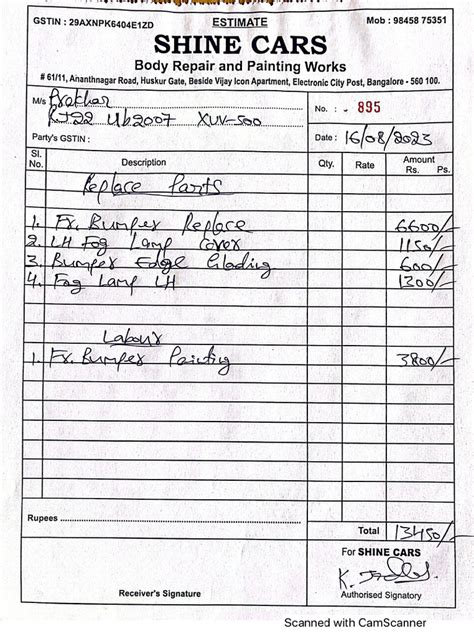 GSTIN : 29AXNPK6404E1ZD ESTIMATE Mob : 98458 75351
SHINE CARS
Body Repair and Painting Works
# 61/11, Ananthnagar Road, Huskur Gate, Beside Vijay Icon Apartment, Electronic City Post, Bangalore - 560 100.
M/s Prakhar
UB2007 XUV-500
No. : - 895
Party's GSTIN :
Date : 16/08/2023
Sl. No. Description Qty. Rate Amount Rs. Ps.
Replace Parts
1. Fr. Bumper Replace 6600/-
2. LH Fog Lamp Cover 1150/-
3. Bumper Edge Glading 600/-
4. Fog Lamp LH 1300/-
Labour
1. Fr. Bumper Painting 3800/-
Rupees
Total 13450/-
For SHINE CARS
Receiver's Signature
Authorised Signatory
Scanned with CamScanner